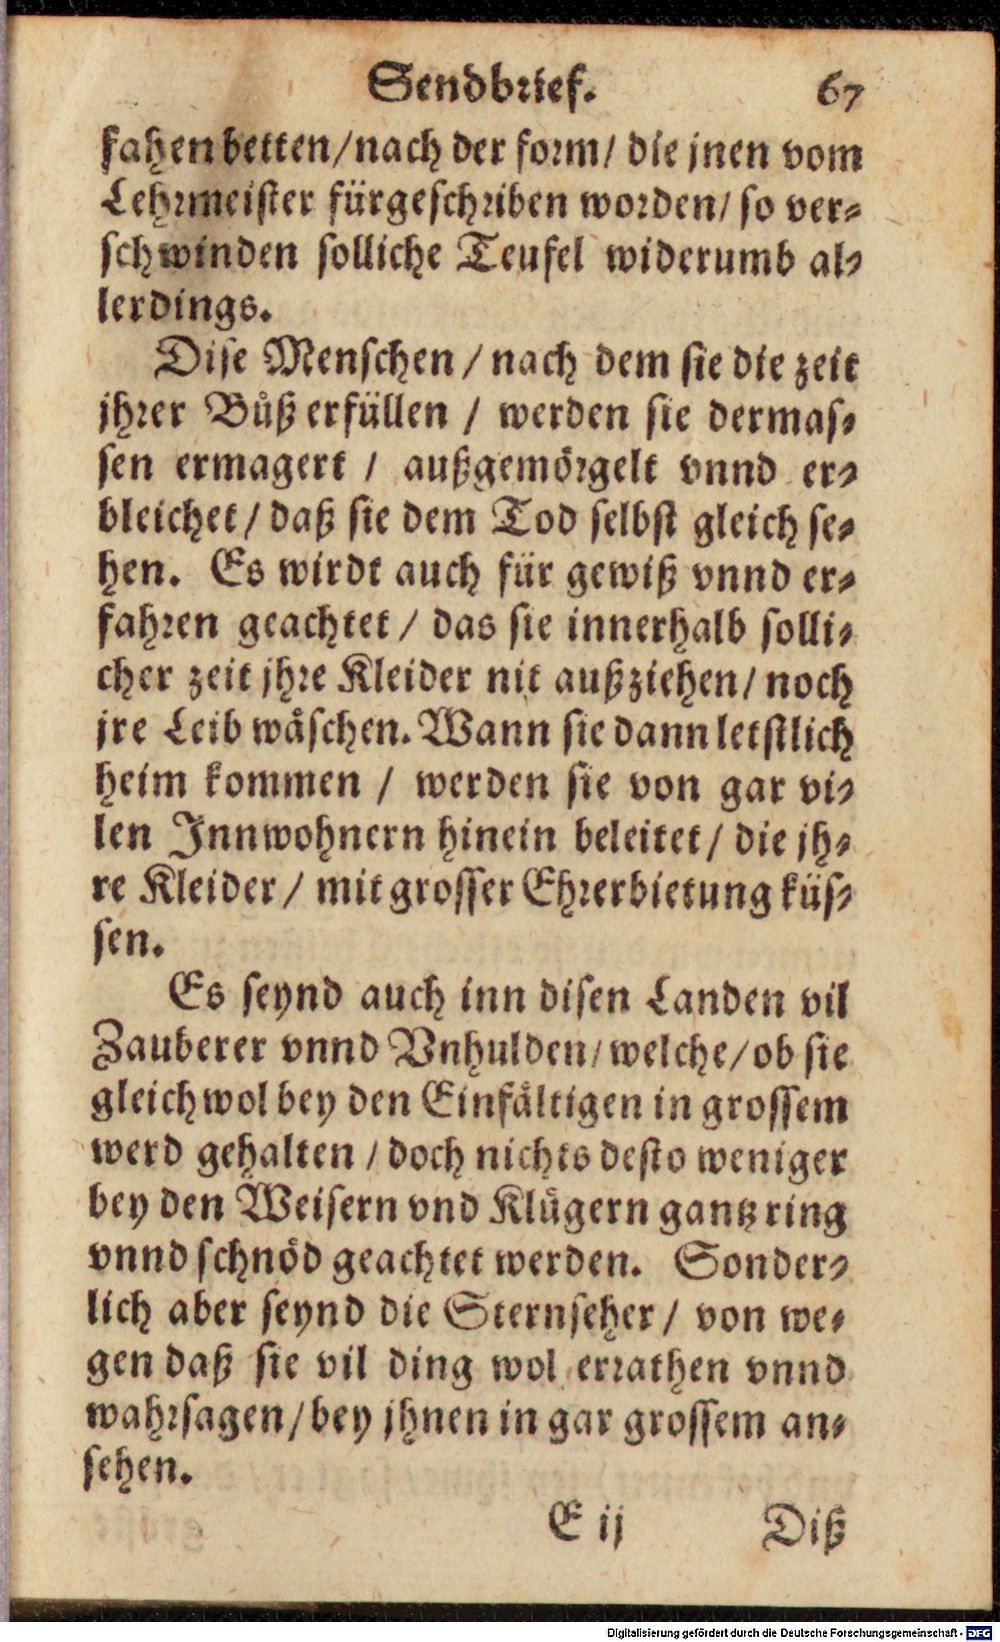 Sendbrief. 67
fahen betten/nach der form/ die jnen vom
Lehrmeister fürgeschriben worden/ so ver-
schwinden solliche Teufel widerumb al-
lerdings.
Dise Menschen / nach dem sie die zeit
jhrer Bůß erfüllen / werden sie dermas-
sen ermagert / außgemörgelt vnnd er-
bleichet / daß sie dem Tod selbst gleich se-
hen. Es wirdt auch für gewiß vnnd er-
fahren geachtet / das sie innerhalb solli-
cher zeit jhre Kleider nit außziehen/ noch
jre Leib wäschen. Wann sie dann letstlich
heim kommen / werden sie von gar vi-
len Jnnwohnern hinein beleitet / die jh-
re Kleider / mit grosser Ehrerbietung küs-
sen.
Es seynd auch inn disen Landen vil
Zauberer vnnd Vnhulden/ welche/ ob sie
gleichwol bey den Einfältigen in grossem
werd gehalten / doch nichts desto weniger
bey den Weisern vnd Klůgern gantz ring
vnnd schnöd geachtet werden. Sonder-
lich aber seynd die Sternseher / von we-
gen daß sie vil ding wol errathen vnnd
wahrsagen/ bey jhnen in gar grossem an-
sehen.
E ij Diß
Digitalisierung gefördert durch die Deutsche Forschungsgemeinschaft - DFG